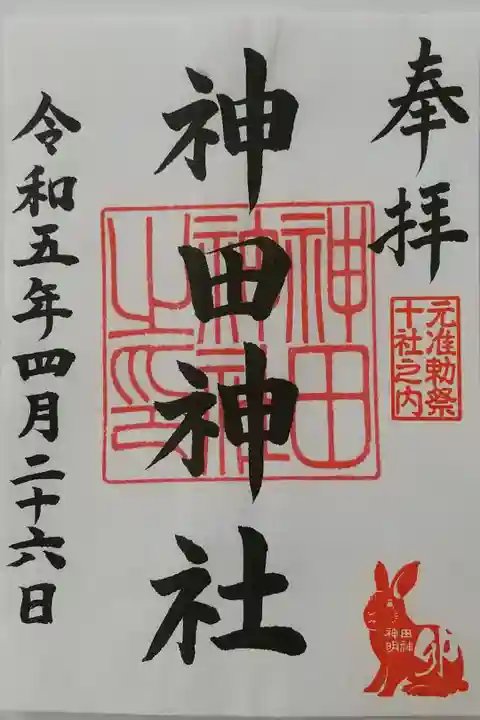 奉拝
元准勅祭
十社之内
神田神社
神田
神社
之印
令和五年四月二十六日
神田
明神
卯